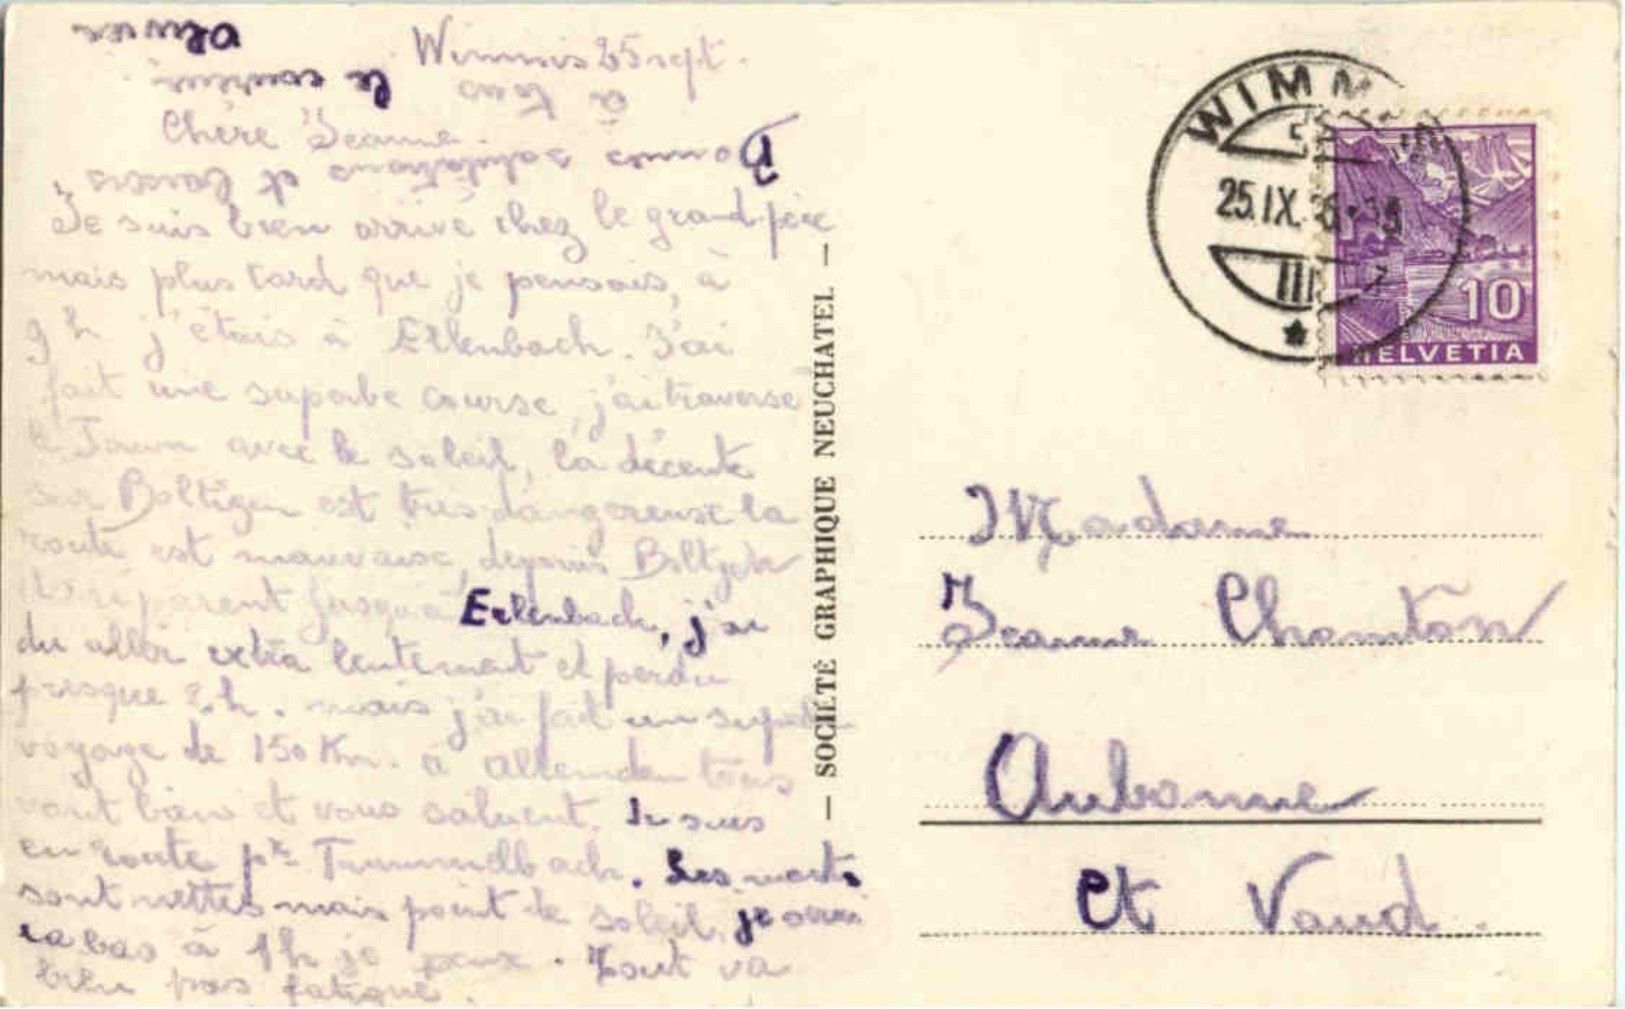 Wimmis 25 sept.
Chère Jeanne.
Je suis bien arrivé chez le grand-père
mais plus tard que je pensais, à
9 h j'étais à Erlenbach. J'ai
fait une superbe course, j'ai traversé
le Jaun avec le soleil, la décente
sur Boltigen est très dangereuse la
route est mauvaise, depuis Boltigen
réparent jusqu'à Erlenbach, j'ai
du aller extra lentement et perdu
presque 2 h. mais j'ai fait un superbe
voyage de 150 Km. à tous
vont bien et vous saluent. Je suis
en route pr Trummelbach. Les monts
sont nettes mais point de soleil,
là bas à 1 h je pense. Tout va
bien pas fatigué.
Bonnes salutations et baisers
à tous
le coureur
Olivier
— SOCIÉTÉ GRAPHIQUE NEUCHATEL —
WIMM
25.IX.
III
10
HELVETIA
Madame
Jeanne
Aubonne
Ct Vaud.